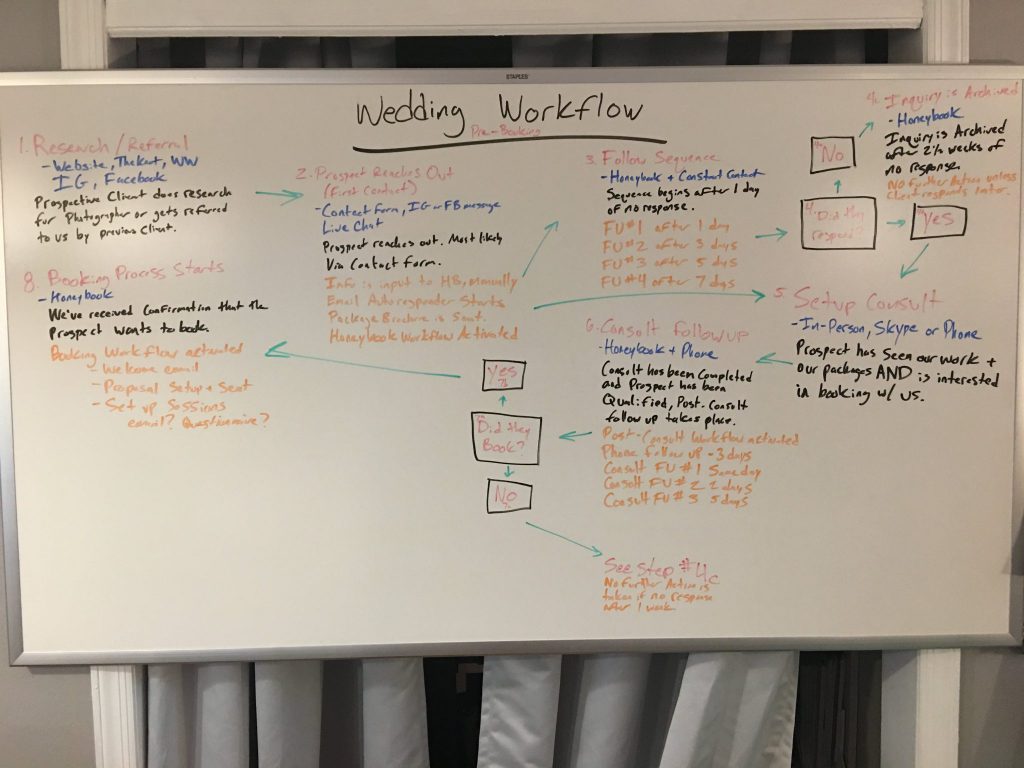 STAPLES
Wedding Workflow
Pre-Booking
1. Research/Referral
- Website, TheKnot, WW
IG, Facebook
Prospective Client does research
for Photographer or gets referred
to us by previous Client.
2. Prospect Reaches Out
(First Contact)
- Contact Form, IG or FB message
Live Chat
Prospect reaches out. Most likely
Via Contact form.
Info is input to HB, manually
Email Autoresponder Starts
Package Brochure is Sent.
Honeybook Workflow Activated
3. Follow Sequence
- Honeybook + Constant Contact
Sequence begins after 1 day
of no response.
FU#1 after 1 day
FU#2 after 3 days
FU#3 after 5 days
FU#4 after 7 days
Did they
respond?
No
Yes
Inquiry is Archived
- Honeybook
Inquiry is Archived
after 2 1/2 weeks of
no response.
No further Action unless
Client responds later.
5. Setup Consult
- In-Person, Skype or Phone
Prospect has seen our work +
our packages AND is interested
in booking w/ us.
6. Consult Followup
- Honeybook + Phone
Consult has been Completed
and Prospect has been
Qualified, Post-Consult
follow up takes place.
Post-Consult Workflow activated
Phone follow up - 3 days
Consult FU #1 Same day
Consult FU #2 2 days
Consult FU #3 5 days
Did they
Book?
Yes
No
See Step #4c
No Further Action is
taken if no response
after 1 week.
8. Booking Process Starts
- Honeybook
We've received Confirmation that the
Prospect wants to book.
Booking Workflow activated
- Welcome email
- Proposal Setup + Sent
- Set up Sessions
email? Questionnaire?